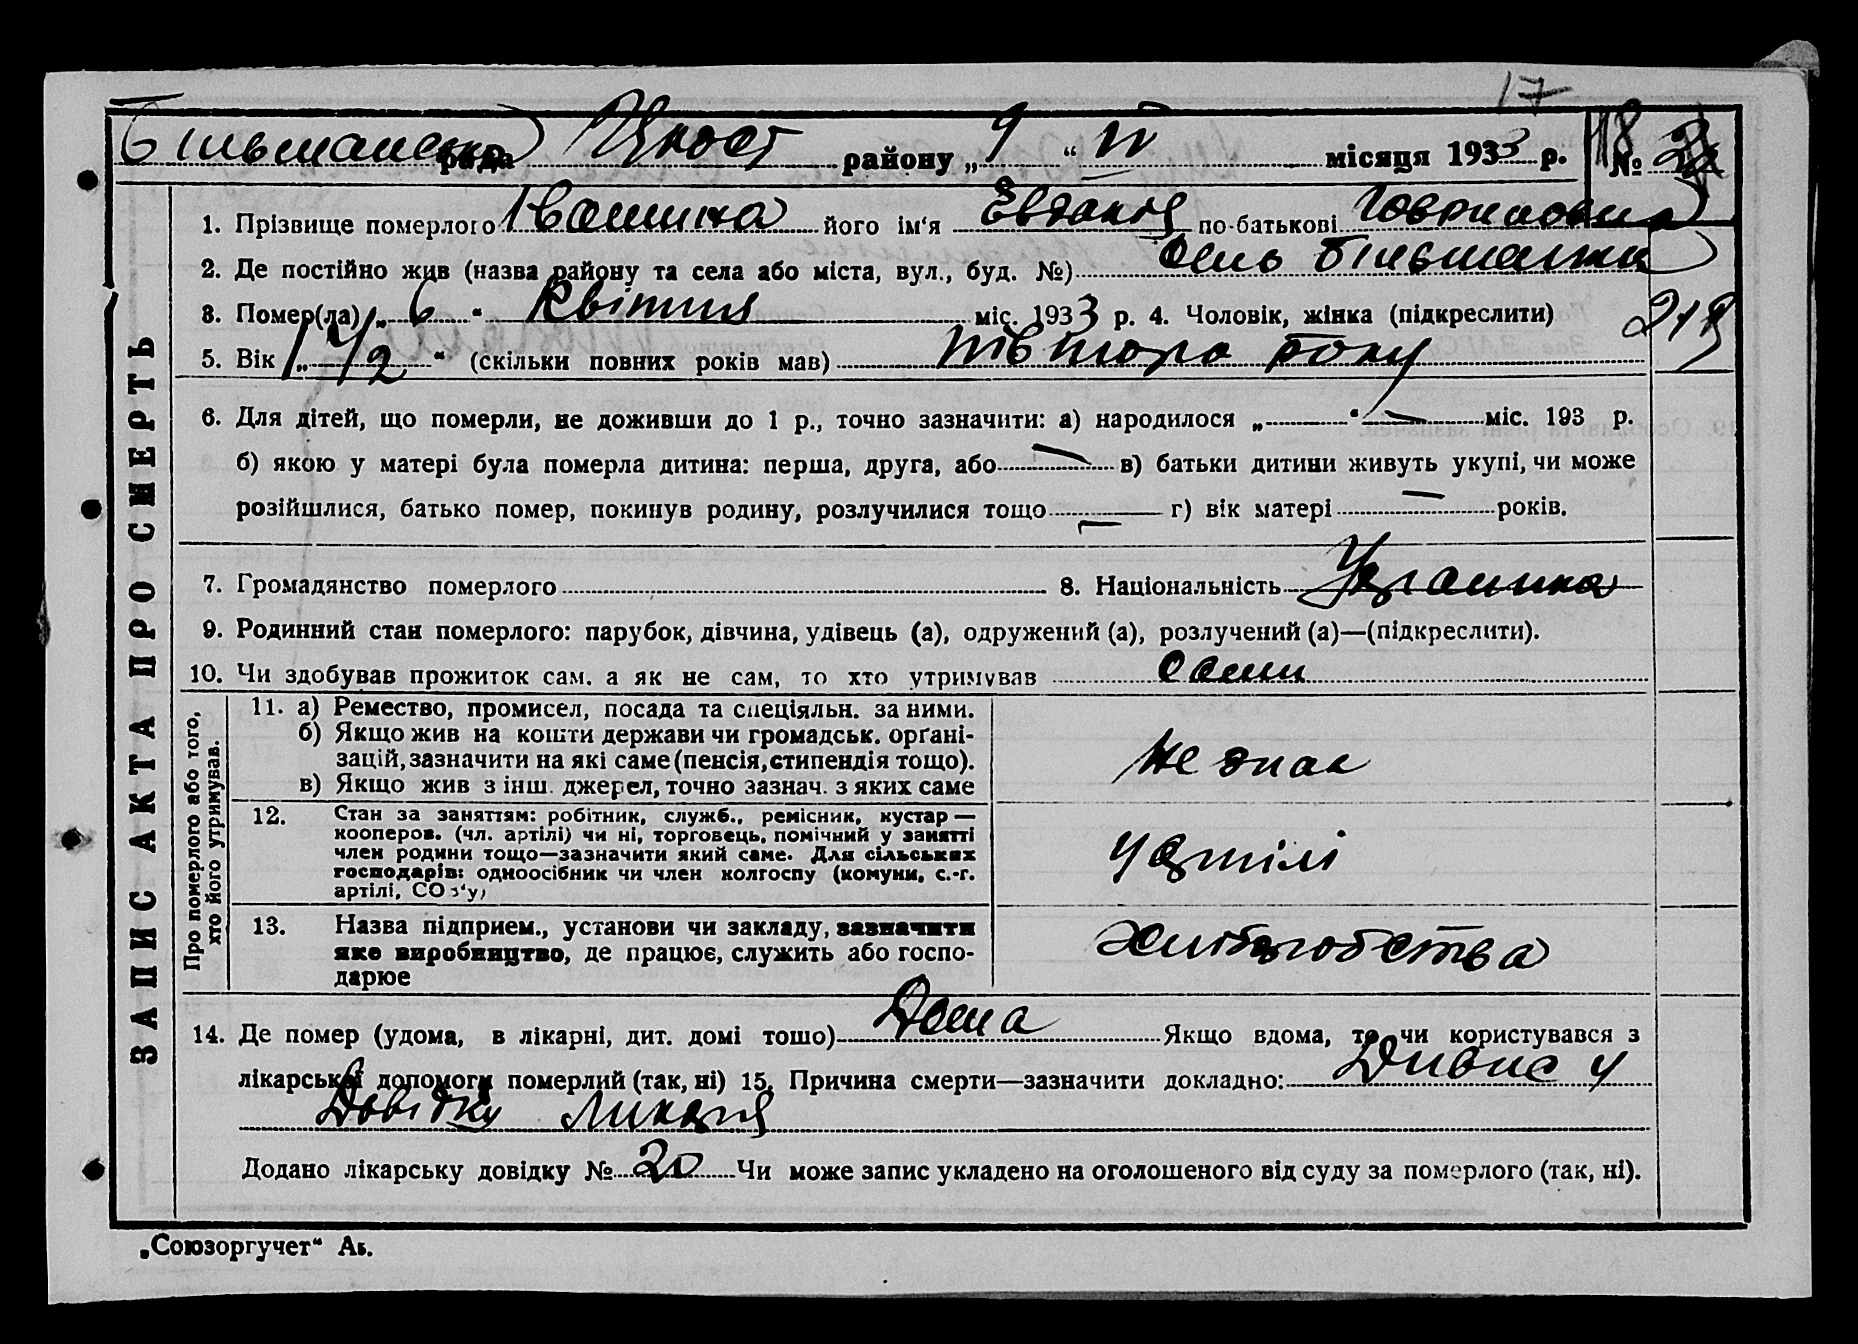 17
Більшанська рада району „9“ IV місяця 1933 р. 18 №
1. Прізвище померлого Івашина його ім'я Евдокія по-батькові Гавриловна
2. Де постійно жив (назва району та села або міста, вул., буд. №)
3. Помер(ла) „6“ Квітня міс. 1933 р. 4. Чоловік, жінка (підкреслити) 218
5. Вік „1 1/2“ (скільки повних років мав) півтора року
6. Для дітей, що померли, не доживши до 1 р., точно зазначити: а) народилося „ “ — міс. 193 р.
б) якою у матері була померла дитина: перша, друга, або — в) батьки дитини живуть укупі, чи може
розійшлися, батько помер, покинув родину, розлучилися тощо — г) вік матері — років.
7. Громадянство померлого 8. Національність Украинка
9. Родинний стан померлого: парубок, дівчина, удівець (а), одружений (а), розлучений (а)—(підкреслити).
10. Чи здобував прожиток сам, а як не сам, то хто утримував
ЗАПИС АКТА ПРО СМЕРТЬ
Про померлого або того,
хто його утримував.
11. а) Ремество, промисел, посада та спеціяльн. за ними.
б) Якщо жив на кошти держави чи громадськ. органі-
зацій, зазначити на які саме (пенсія, стипендія тощо).
в) Якщо жив з інш. джерел, точно зазнач. з яких саме
не знає
12. Стан за заняттям: робітник, служб., ремісник, кустар —
кооперов. (чл. артілі) чи ні, торговець, помічний у занятті
член родини тощо—зазначити який саме. Для сільських
господарів: одноосібник чи член колгоспу (комуни, с.-г.
артілі, СОЗ'у)
у артілі
13. Назва підприєм., установи чи закладу, зазначити
яке виробництво, де працює, служить або госпо-
дарює
14. Де помер (удома, в лікарні, дит. домі тощо) Дома Якщо вдома, то чи користувався з
лікарської допомоги померлий (так, ні) 15. Причина смерти—зазначити докладно: Дивис у
Довідку Ликаря
Додано лікарську довідку № 20 Чи може запис укладено на оголошеного від суду за померлого (так, ні).
„Союзоргучет“ Аь.